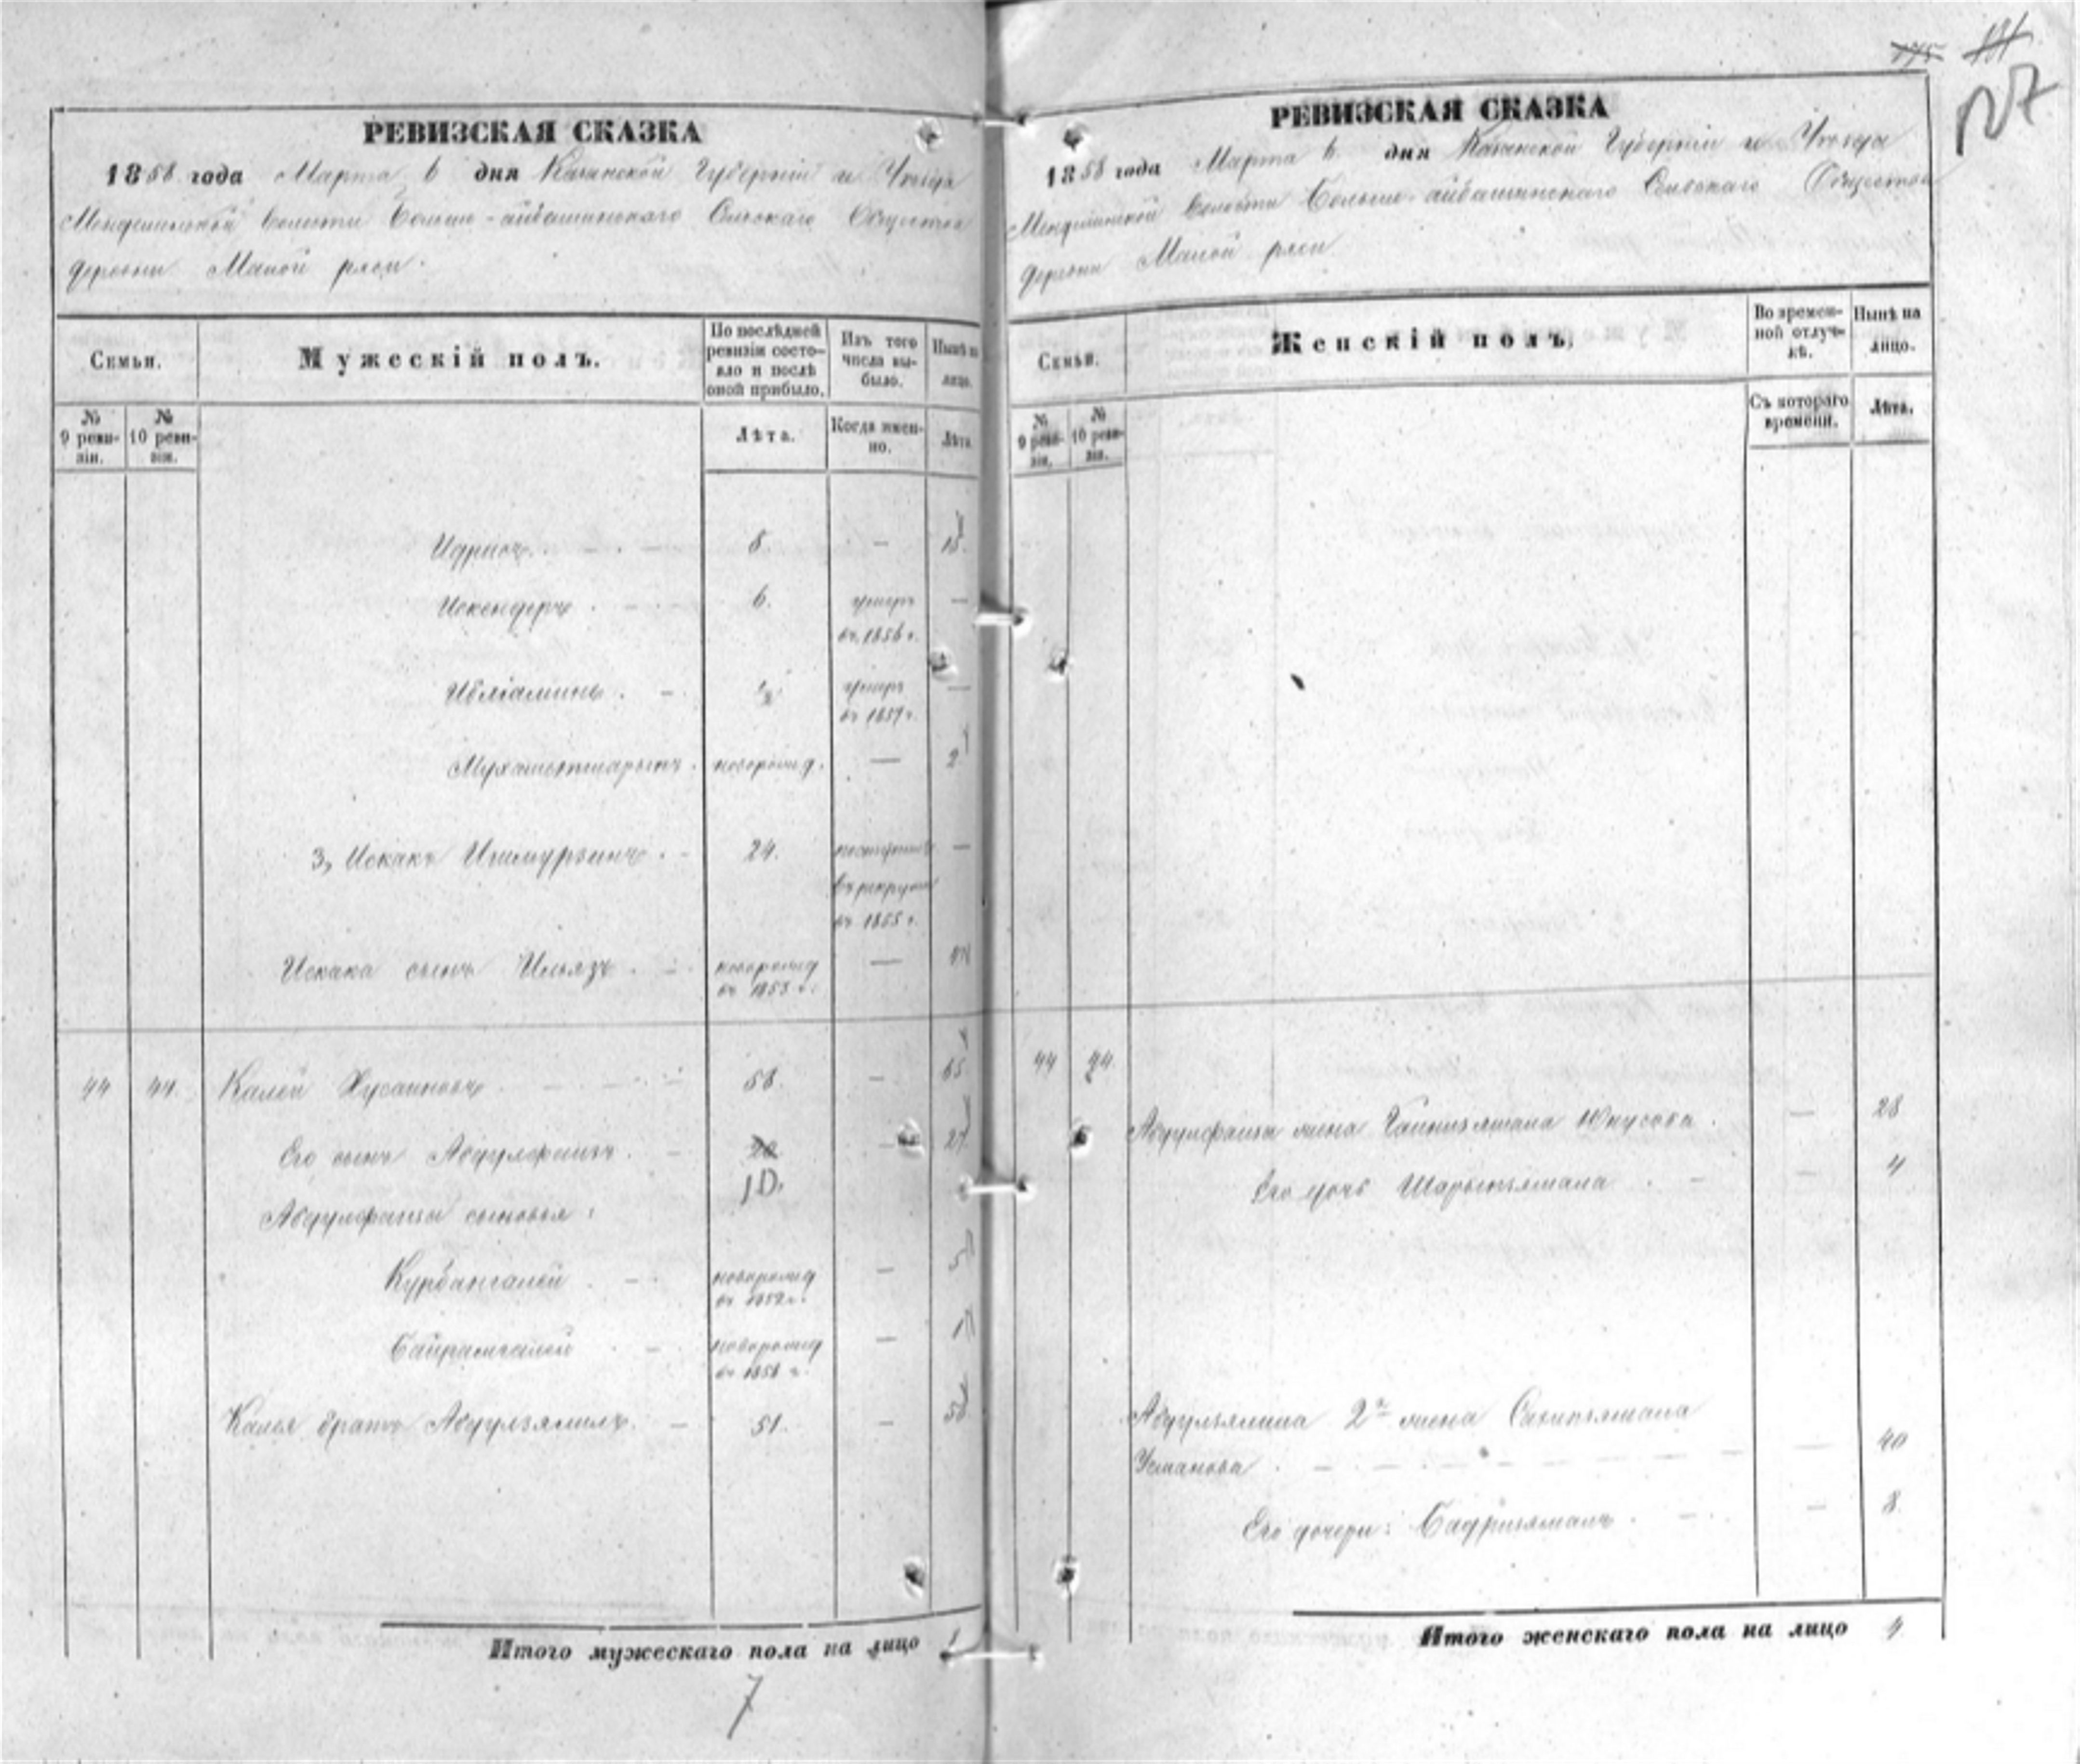 175 191
127
РЕВИЗСКАЯ СКАЗКА
1858 года Марта 6 дня Казанской Губерніи и Уезда
Менделинской волости Больше-айбашинскаго Сельскаго Общества
деревни Малой ряси.
Семьи.
Мужескій полъ.
По послѣдней ревизіи состояло и послѣ оной прибыло.
Изъ того числа выбыло.
Нынѣ на лицо.
№ 9 ревизіи.
№ 10 ревизіи.
Лѣта.
Когда именно.
Лѣта.
Идрисъ. 8. — 15.
Искендеръ 6. умеръ —
въ 1856 г.
умеръ —
въ г.
новорожд. — 2
3, Искакъ Ишмурзинъ 24. поступилъ —
въ рекруты
въ 1855 г.
Искака сынъ Ильязъ новорожд —
въ 1853 г.
44 44. Калей Хусаиновъ 58. — 65
Его сынъ Абдулфаизъ. 20 — 27
10.
Абдулфаиза сыновья:
Курбангалей новорожд —
въ 1852 г.
Байрамгалей новорожд —
въ г.
Калея братъ Абдулзямилъ. — 51. — 58
Итого мужескаго пола на лицо
7
РЕВИЗСКАЯ СКАЗКА
1858 года Марта 6 дня Казанской Губерніи и Уезда
Менделинской волости Больше-айбашинскаго Сельскаго Общества
деревни Малой ряси
Семьи.
Женскій полъ.
Во временной отлучкѣ.
Нынѣ на лицо.
№ 9 ревизіи.
№ 10 ревизіи.
Съ котораго времени.
Лѣта.
44 44.
Абдулфаиза жена Юнусова. — 28
Его дочь — 4
Абдулзямила 2я жена
Усманова — 40
Его дочери: Бадризямалъ. — 8.
Итого женскаго пола на лицо 4.